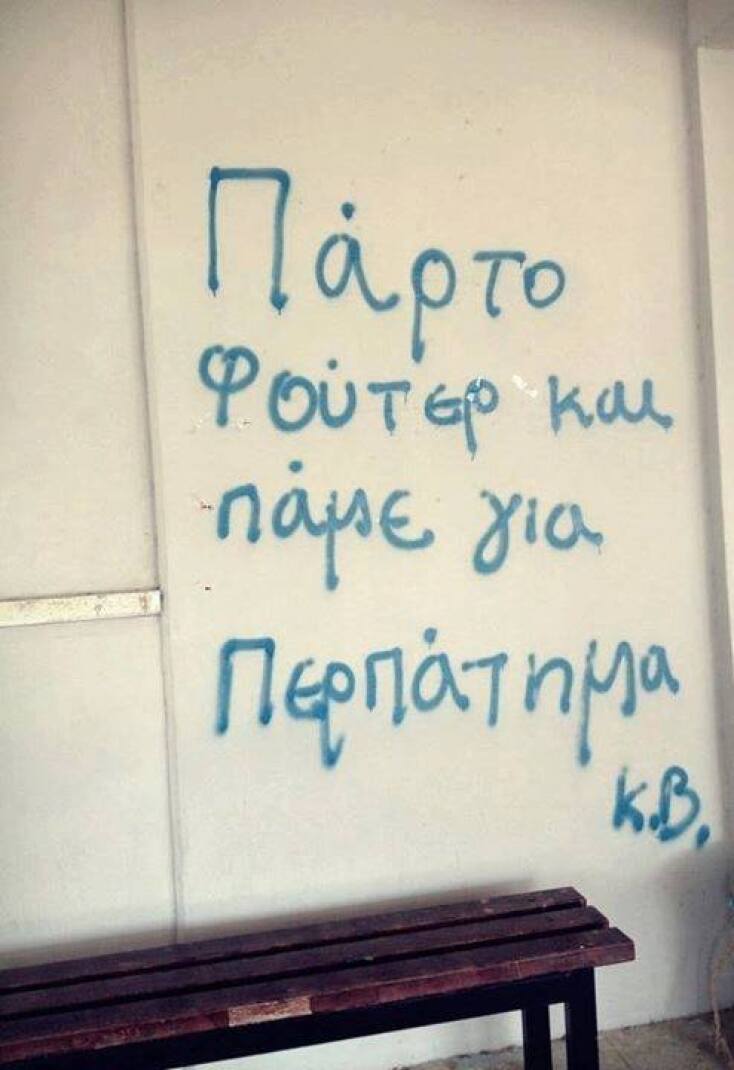 Πάρτο
Φούτερ και
πάμε για
Περπάτημα
κ.Β.